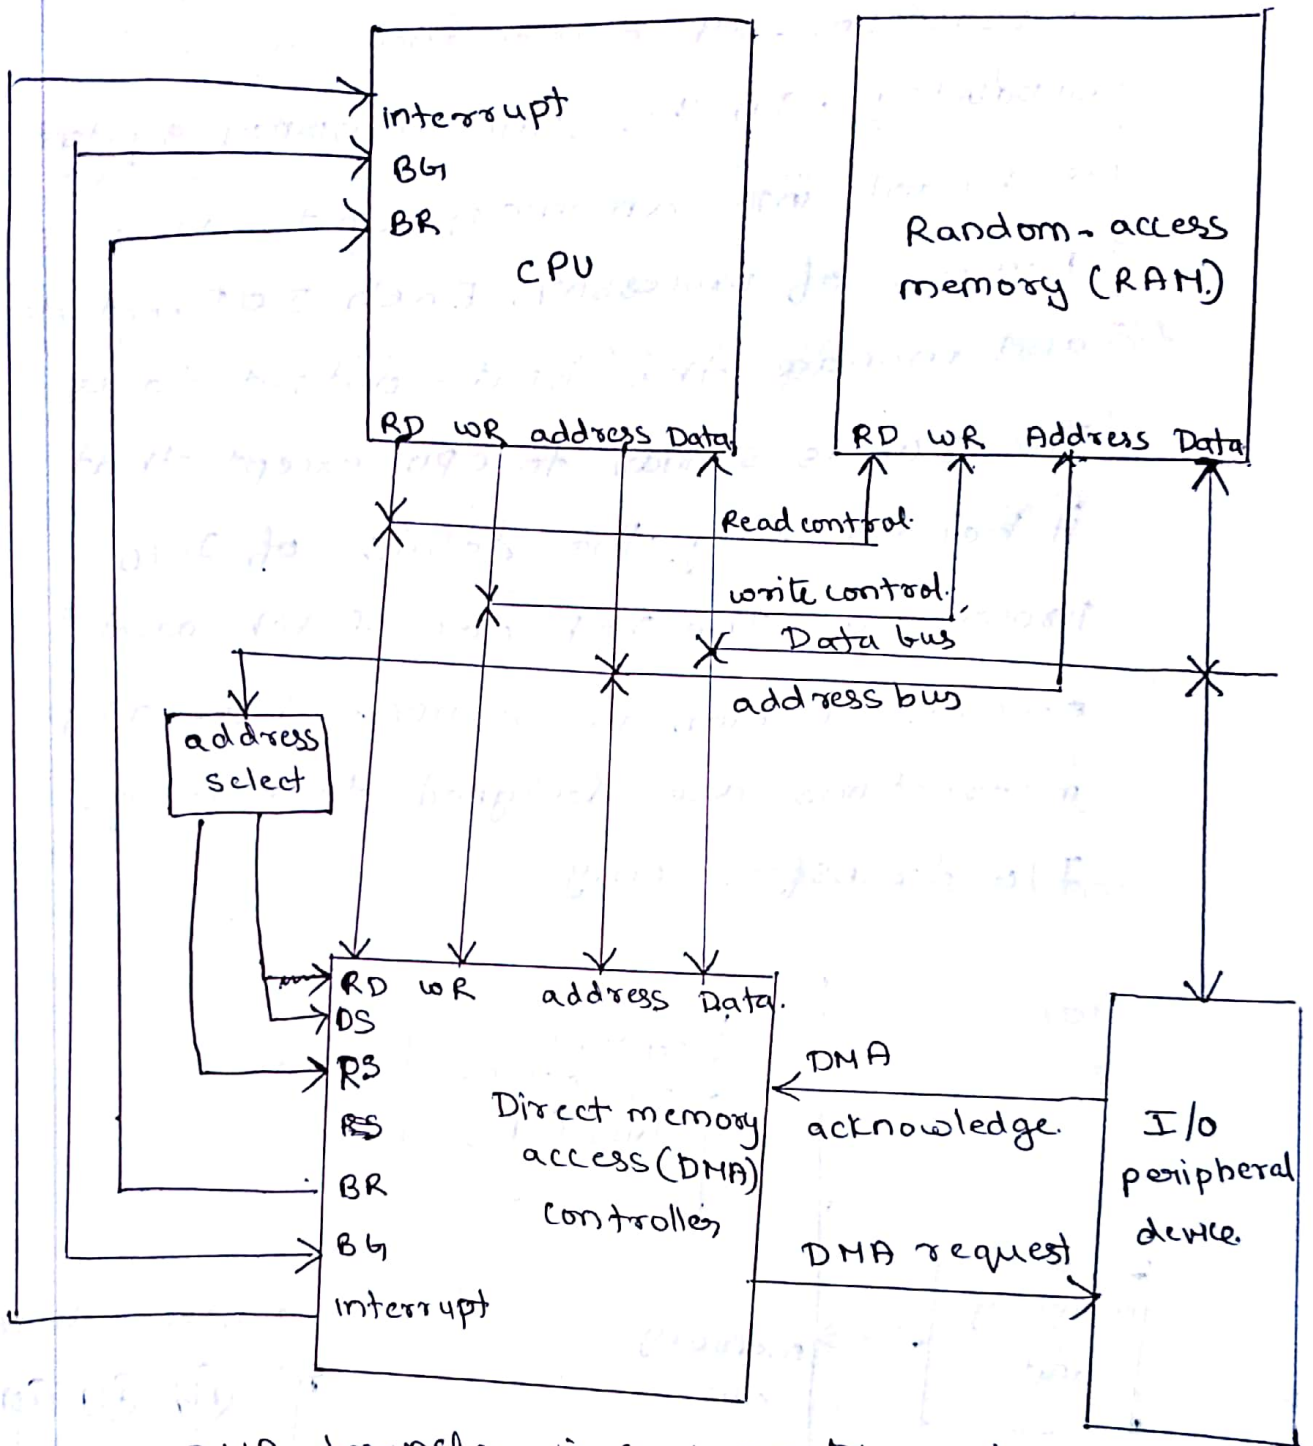 interrupt
BG
BR
CPU
RD WR address Data
Random-access
memory (RAM.)
RD WR Address Data
Read control.
write control.
Data bus
address bus
address
select
RD WR address Data.
DS
RS
RS
BR
BG
interrupt
Direct memory
access (DMA)
controller
DMA
acknowledge.
DMA request
I/o
peripheral
device.